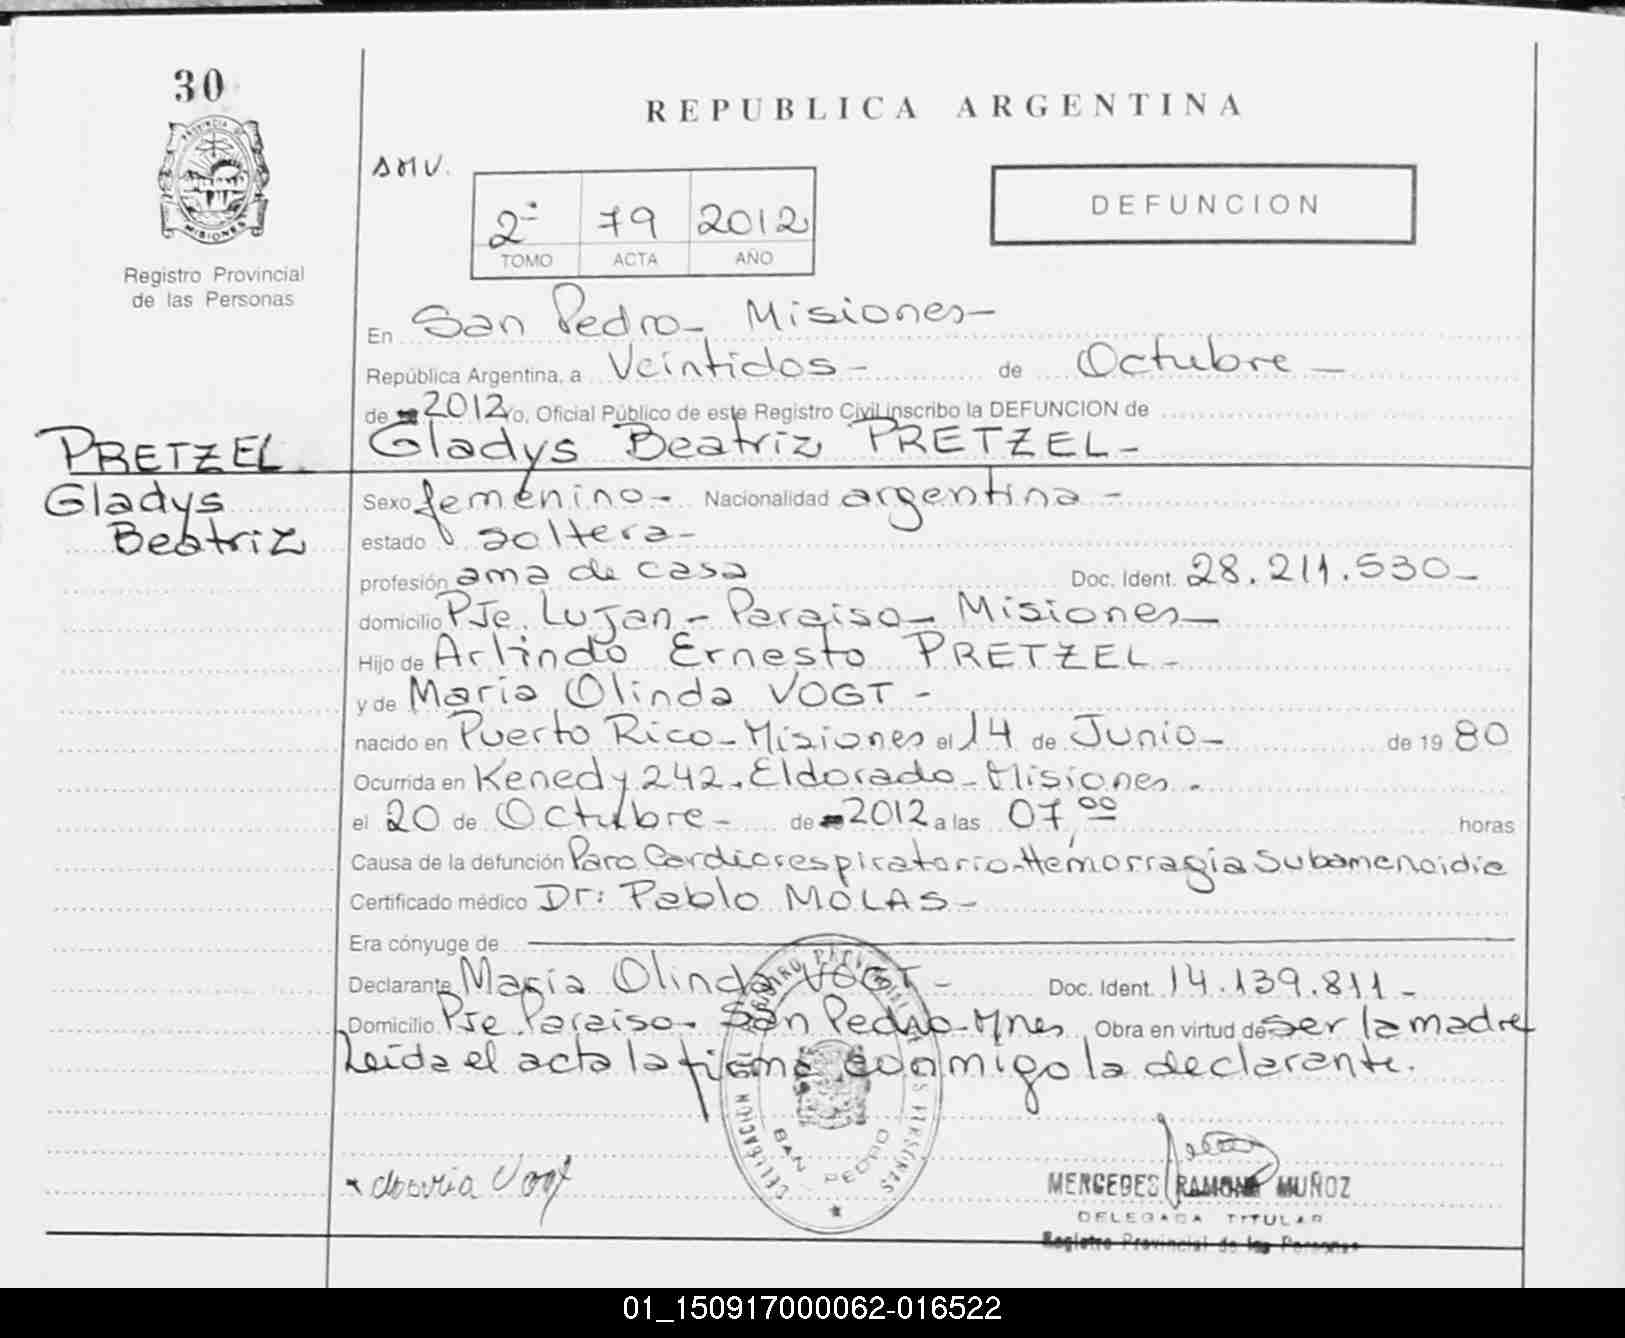 30
REPUBLICA ARGENTINA
PROVINCIA DE
MISIONES
Registro Provincial
de las Personas
SMV.
2ª 79 2012
TOMO ACTA AÑO
DEFUNCION
En San Pedro - Misiones -
República Argentina, a Veintidos - de Octubre -
de 2012 yo, Oficial Público de este Registro Civil inscribo la DEFUNCION de
PRETZEL Gladys Beatriz
Gladys Beatriz PRETZEL -
Sexo femenino - Nacionalidad argentina -
estado soltera -
profesión ama de casa Doc. Ident. 28.211.530 -
domicilio Pje. Lujan - Paraiso - Misiones -
Hijo de Arlindo Ernesto PRETZEL -
y de Maria Olinda VOGT -
nacido en Puerto Rico - Misiones el 14 de Junio - de 1980
Ocurrida en Kenedy 242. Eldorado - Misiones -
el 20 de Octubre - de 2012 a las 07,00 horas
Causa de la defunción Paro Cardiorespiratorio - Hemorragia Subamenoidie
Certificado médico Dr: Pablo MOLAS -
Era cónyuge de
Declarante Maria Olinda VOGT - Doc. Ident. 14.139.811 -
Domicilio Pje. Paraiso - San Pedro - Mnes Obra en virtud de ser la madre
Leída el acta la firma conmigo la declarante.
SAN PEDRO
Vogt
MERCEDES RAMONA MUÑOZ
DELEGADA TITULAR
Registro Provincial de las Personas
01_150917000062-016522